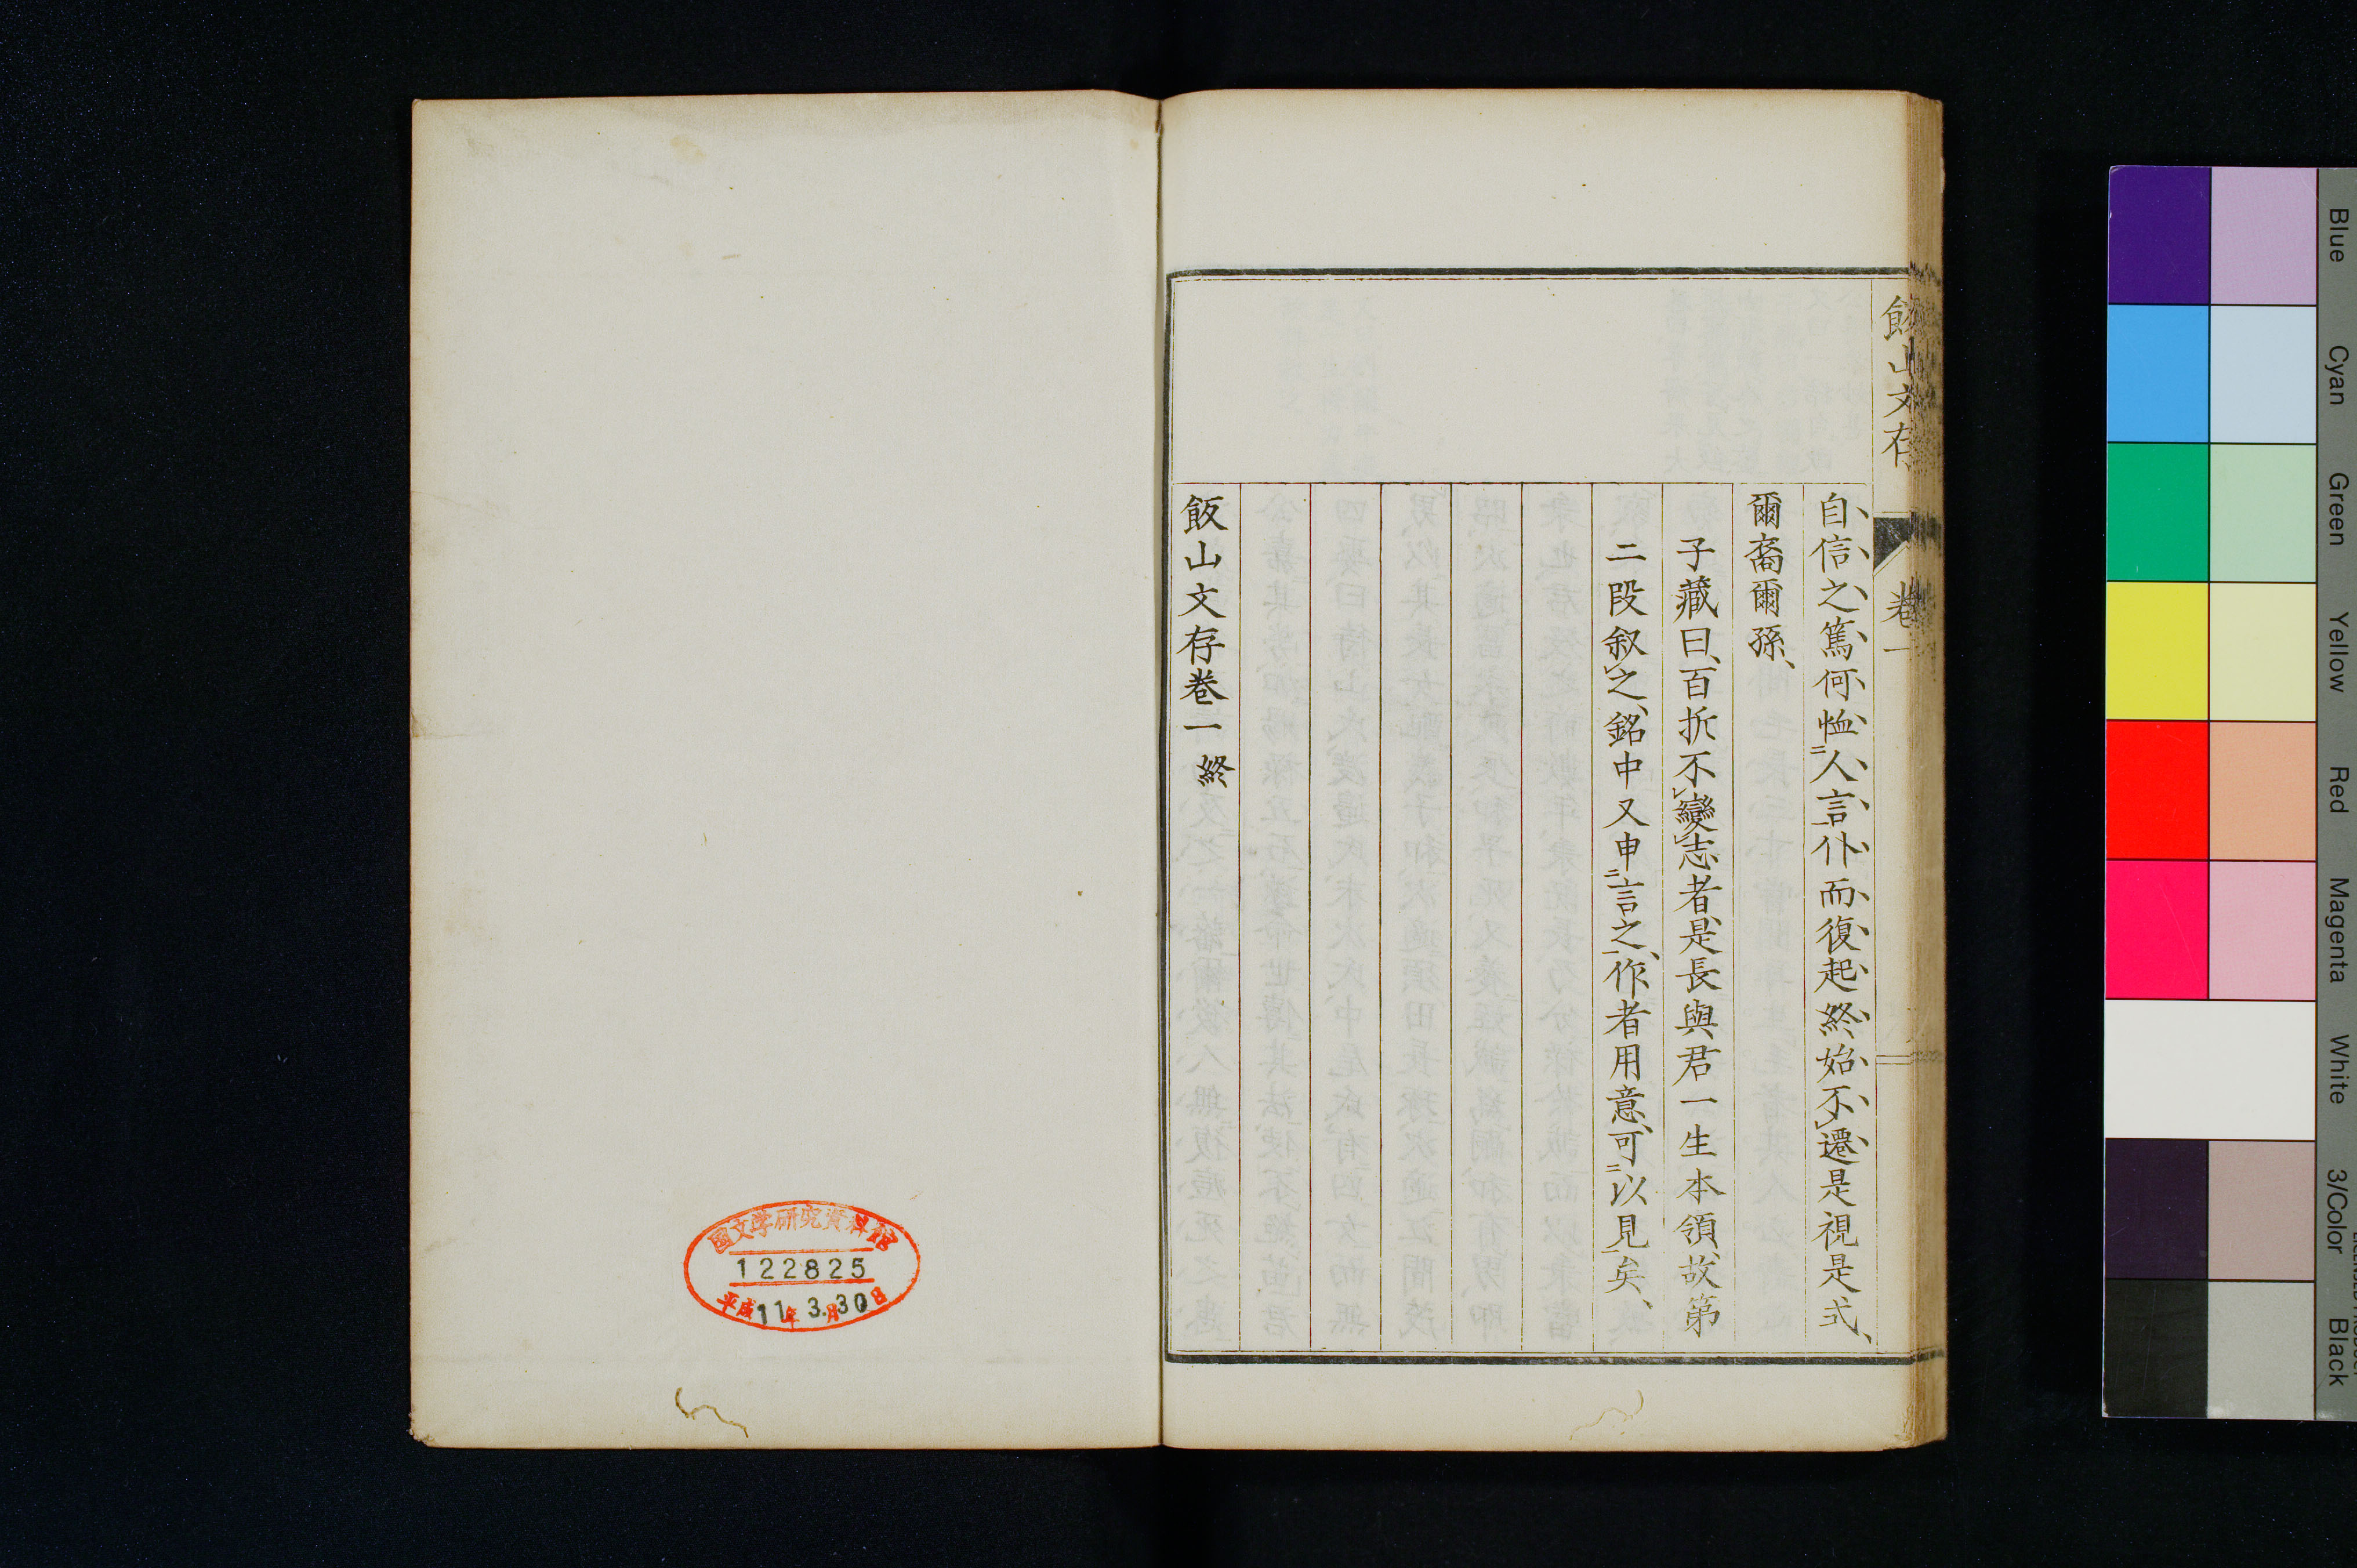 飯山文存
卷一
自信之篤何恤人言仆而復起終始不遷是視是式、
爾裔爾孫、
子藏曰、百折不變志者、是長與君一生本領、故第
二段叙之、銘中又申言之、作者用意、可以見矣、
飯山文存卷一 終
國文学研究資料館
122825
平成11年3月30日
Blue
Cyan
Green
Yellow
Red
Magenta
White
3/Color
Black